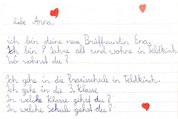 Liebe Anna,
ich bin deine neue Brieffreundin Ena.
Ich bin 8 Jahre alt und wohne in Feldkirch.
Wo wohnst du?
Ich gehe in die Volksschule in Feldkirch.
Ich gehe in die 3. Klasse
In welche Klasse gehst du?
In welche Schule gehst du?